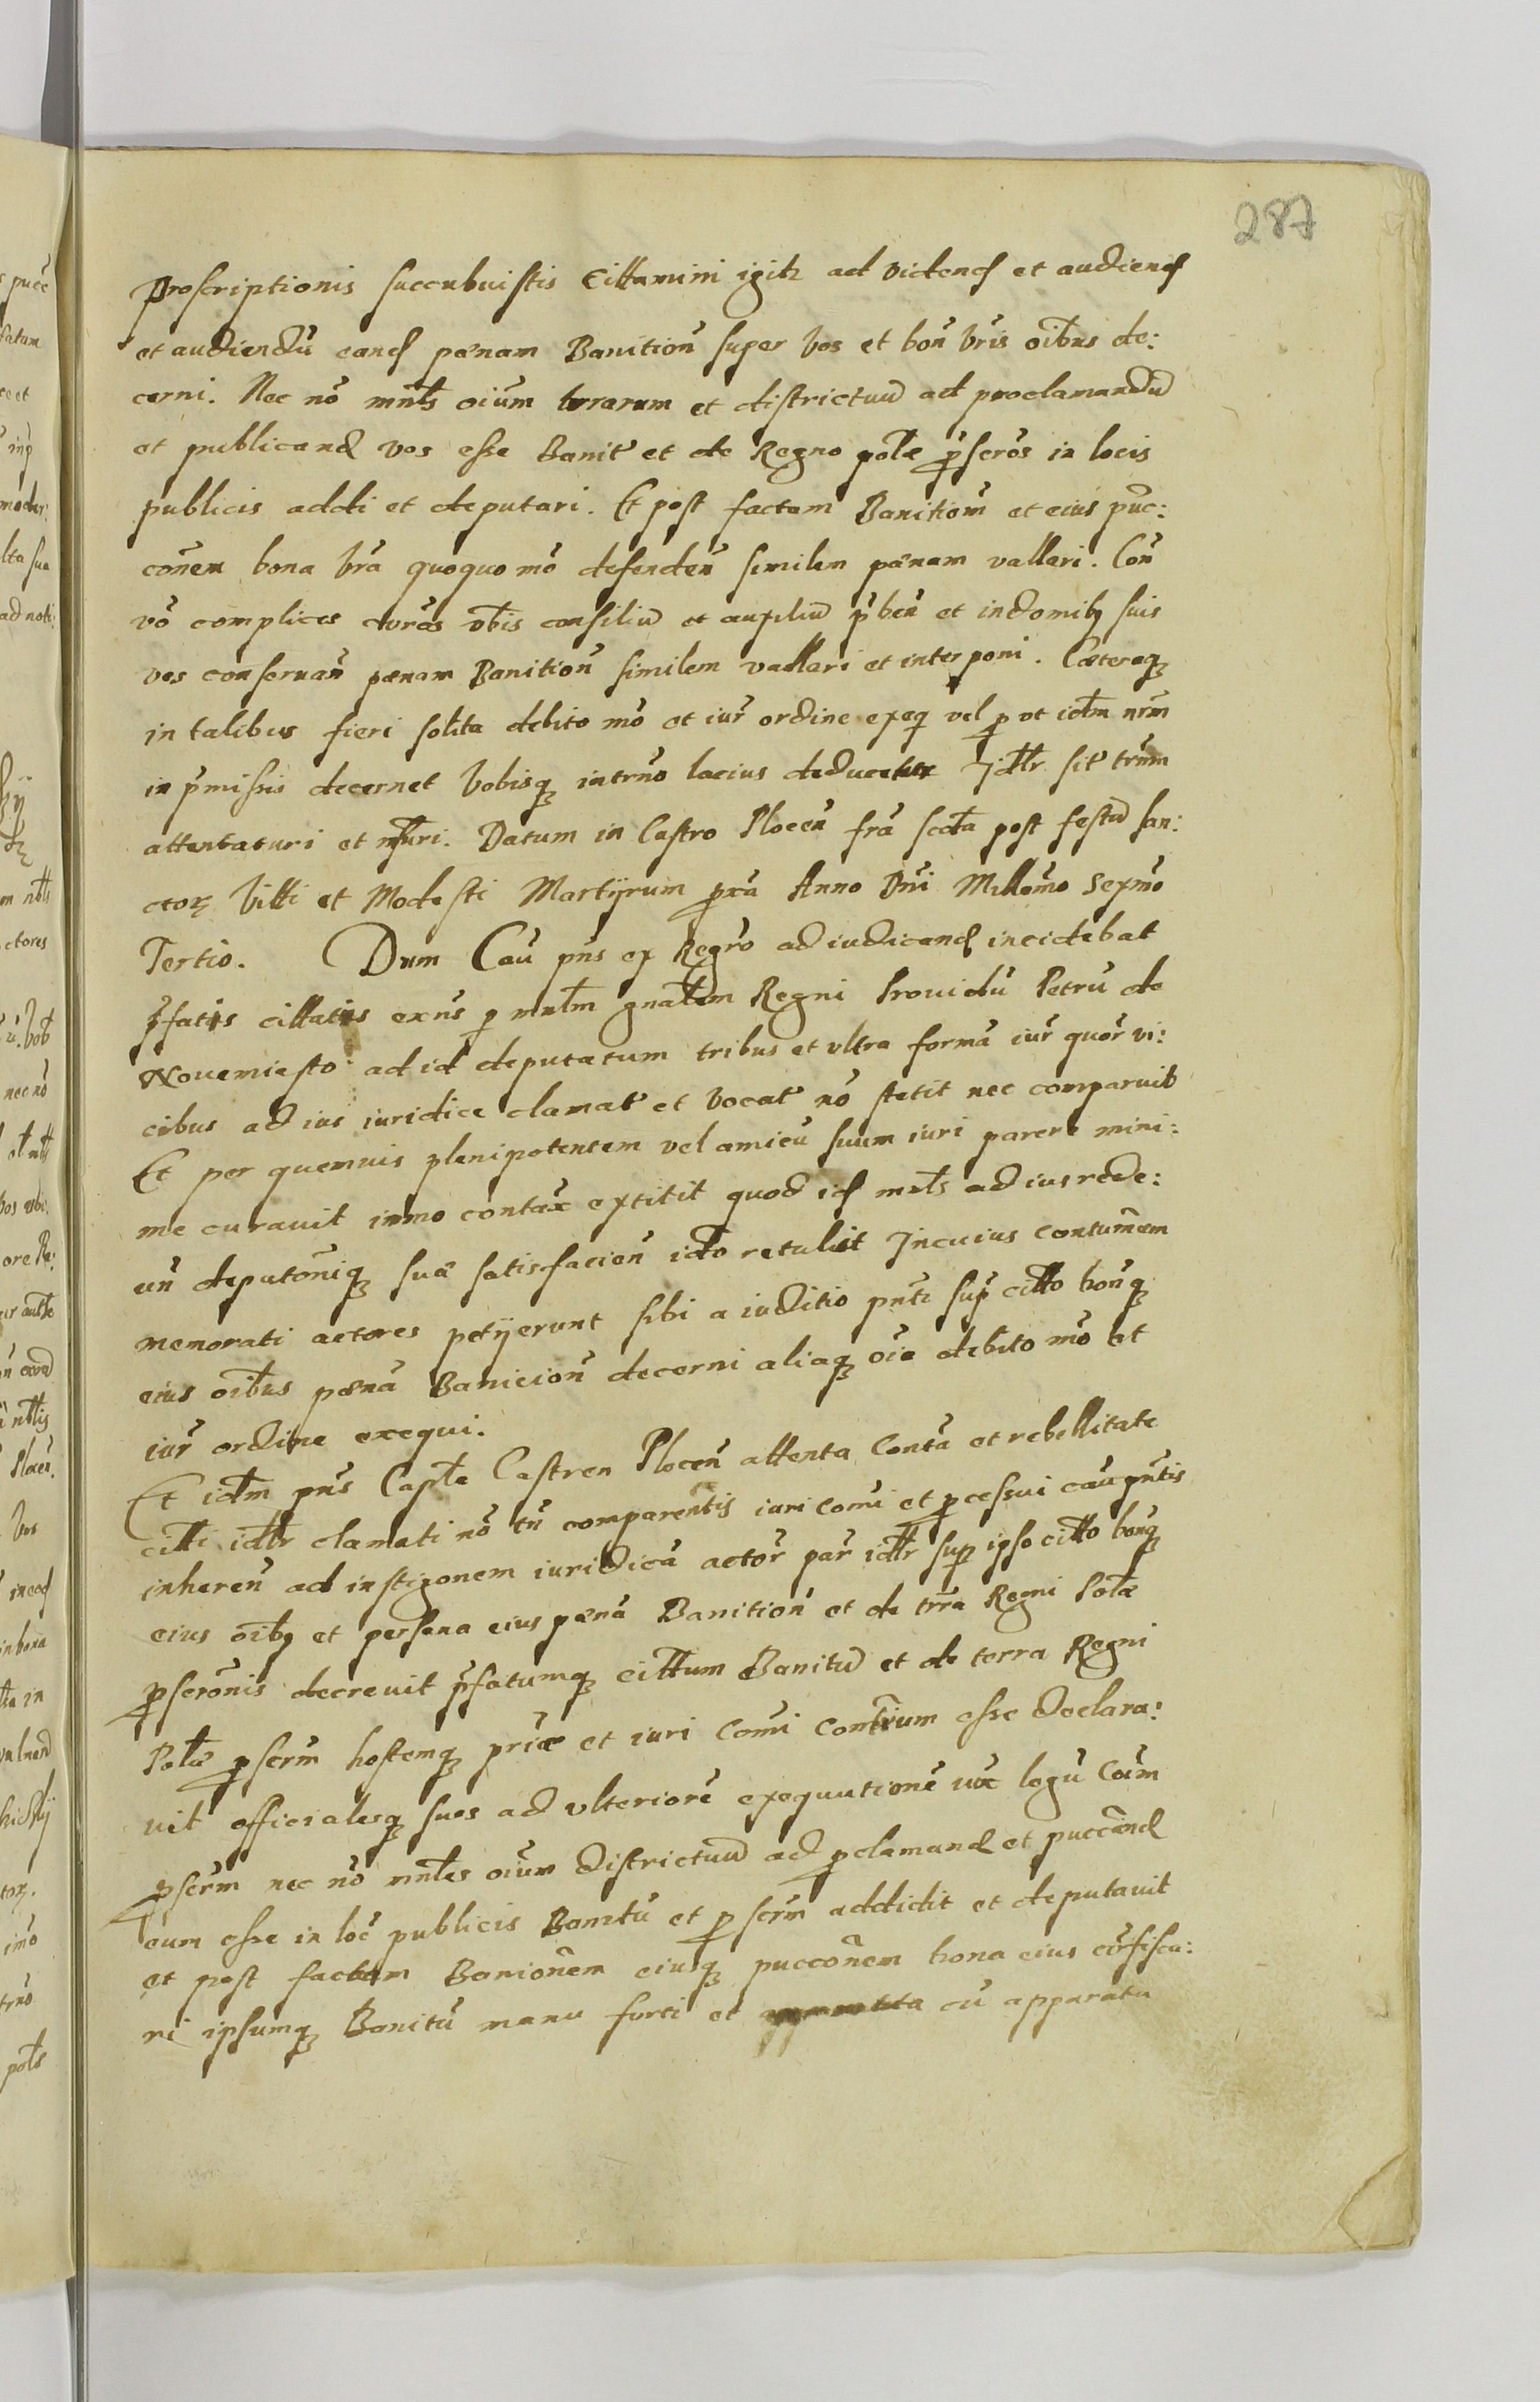 287
proscriptionis succubuistis Cittamini igitr ad videnđ et audienđ
et audiendū eanđ pœnam Banitioñ super vos et boñ vr̃is oĩbus de:
cerni. Nec nõ mnĩs oium terrarum et districtuũ ad proclamandũ
et publicanđ vos esse Banit̃ et de Regno polæ p̃scr̃os in locis
publicis addi et deputari. Et post factam Banitioñ et eius puc̃:
cõnem bona vr̃a quoquo mõ defendeñ similem pœnam vallari. Coñ
võ complices vr̃os vobis consiliũ et auxiliũ p̃beñ et in domibꝫ suis
vos conseruañ pœnam Banitioñ similem vallari et interponi. Cæteraqꝫ
in talibus fieri solita debito mõ et iur̃ ordine exeq̃ vel ꝓ vt idm̃ nr̃m
in p̃missis decernet Vobisqꝫ in trño lacius deducetur Idtr̃ sit̃ trm̃
attentaturi et rñsuri. Datum in Castro Ploceñ fr̃a scđa post festũ san:
ctoꝝ Vitti et Modesti Martÿrum px̃a Anno Dñi Millmõ Sexmõ
Tertio. Dum Caũ pñs ex Regr̃o ad iudicanđ incidebat
p̃fatis cittatis exñs ꝑ mnlm̃ gnãlem Regni Prouidũ Petrũ de
Nouemiesto ad id deputatum tribus et vltra formã iur̃ quor̃ vi:
cibus ad ius iuridice clamat̃ et vocat̃ nõ stetit nec comparuit
Et per quemuis plenipotentem vel amicũ suum iuri parere mini:
me curauit immo contãx extitit quod iđ mnls̃ ad ius rede:
uñ deputõniqꝫ suæ satisfacieñ idtõ retulit In cuius contum̃am
memorati actores petÿerunt sibi a iuditio pñti sup̃ citto bonqꝫ
eius oĩbus pœnã Banicioñ decerni aliaqꝫ oĩa debito mõ et
iur̃ ordine exequi.
Et idm̃ pñs Capt̃le Castren Ploceñ attenta Contã et rebellitate
citti idtr̃ clamati nõ tñ comparentis iuri comũi et ꝓcessui cau pñtis
inhereñ ad instigonem iuridicã actor̃ par̃ idtr̃ sup̃ ipso citto bonqꝫ
eius oĩbꝫ et persona eius pœnã Banitioñ et de tr̃ra Regni Polæ
ꝓscrõnis decreuit p̃fatumqꝫ cittum Banitũ et de terra Regni
Polæ ꝓscrm̃ hostemqꝫ pr̃iæ et iuri Comũi Contr̃ium esse declara:
uit officialesqꝫ suos ad vlteriorẽ exequutionẽ iux̃ legũ Coĩm
ꝓscrm̃ nec nõ mnles oĩum districtuũ ad ꝓclamanđ et puccãnđ
eum esse in loc̃ publicis Banitũ et ꝓscrm̃ addidit et deputauit
et post factam Banionẽm eiusqꝫ puccõnem bona eius cõnfisca:
ri ipsumqꝫ Banitũ manu forti et cũ apparatu